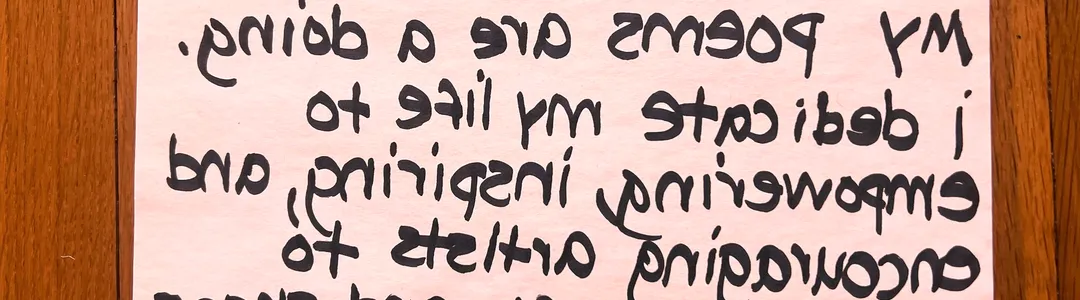 My poems are a doing.
i dedicate my life to
empowering, inspiring, and
encouraging artists to